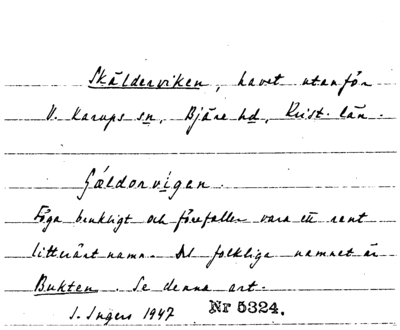 Skälderviken, havet utanför
V. Karups sn, Bjäre hd, Krist. län.
Föga brukligt och förefaller vara ett rent
litterärt namn. Det folkliga namnet är
Bukten. Se denna art.
I. Ingers 1947 Nr 5324.